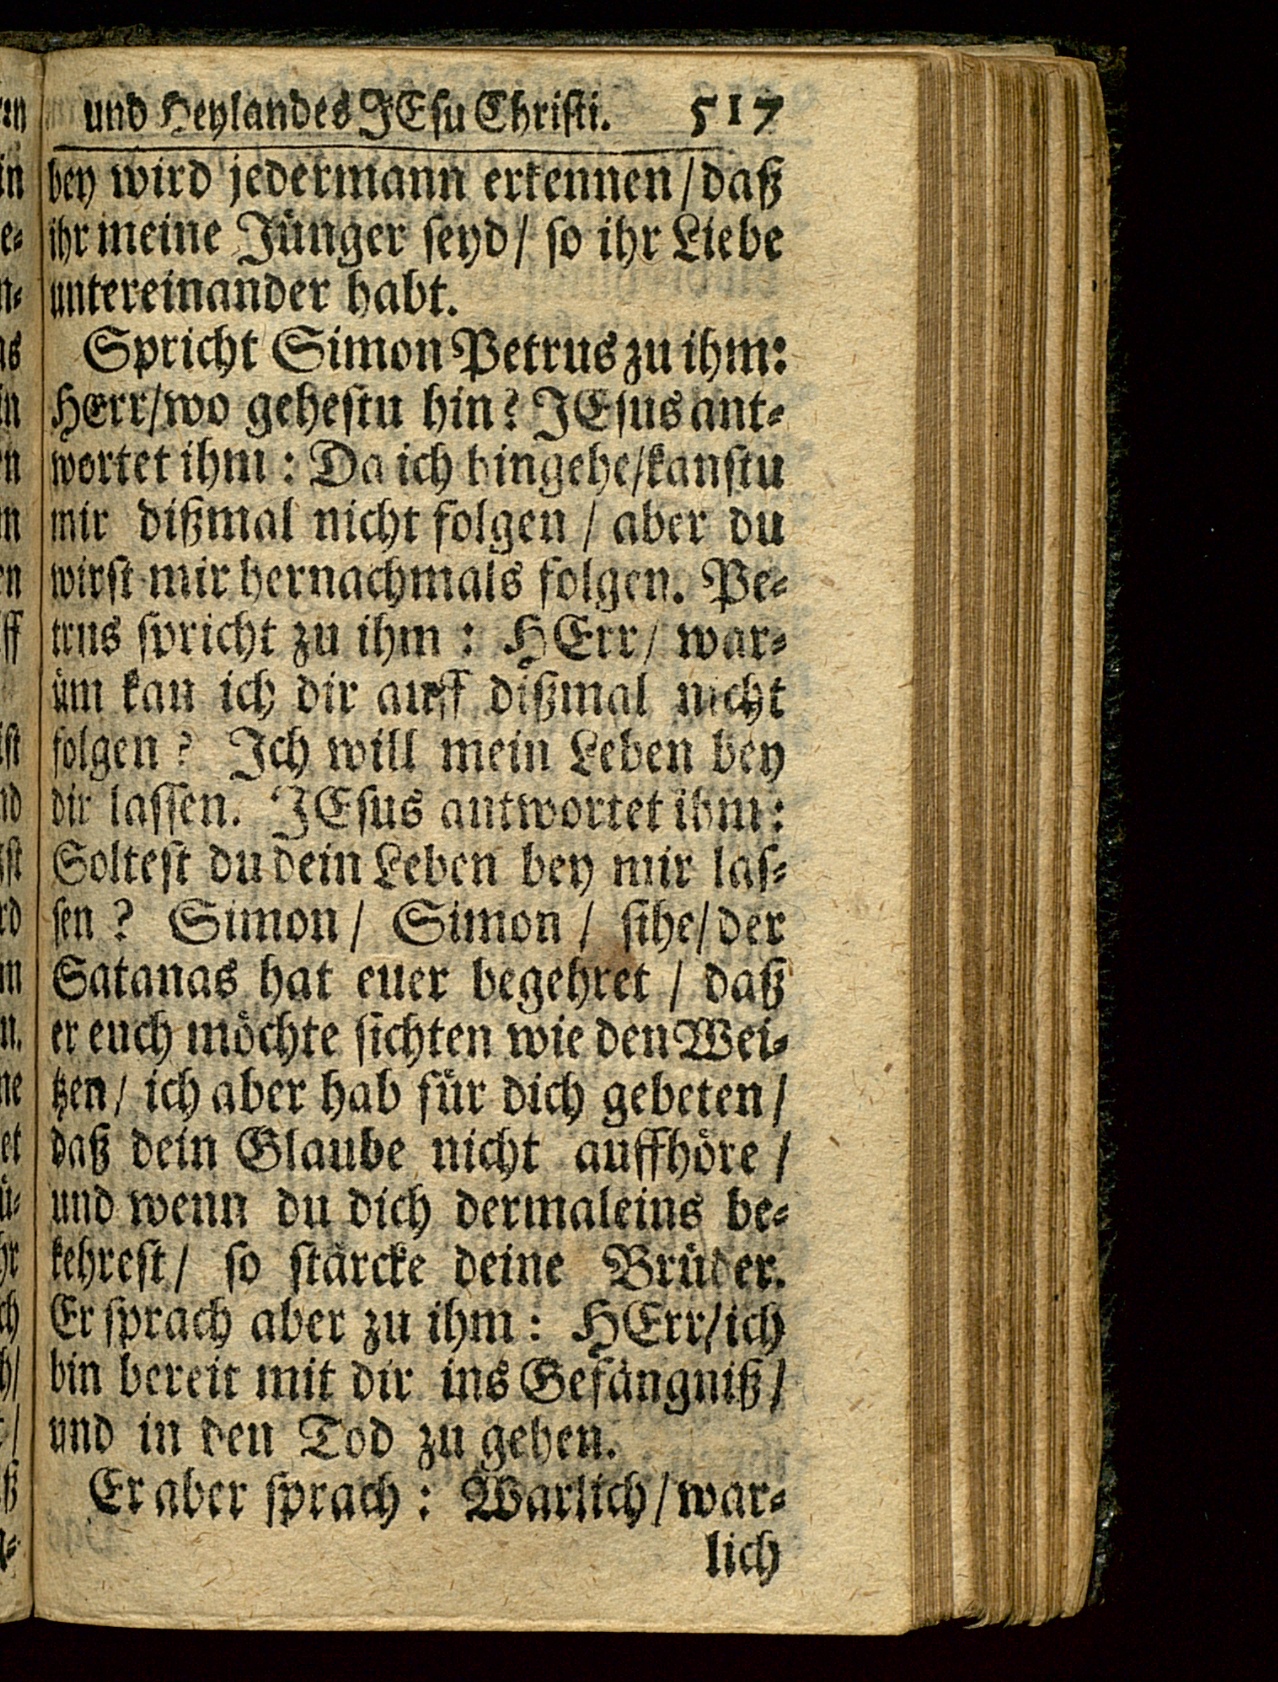 und Heylandes JEsu Christi. 517
bey wird jedermann erkennen/daß
ihr meine Jünger seyd/ so ihr Liebe
untereinander habt.
Spricht Simon Petrus zu ihm:
HErr/wo gehestu hin? JEsus ant-
wortet ihm: Da ich hingehe/kanstu
mir dißmal nicht folgen / aber du
wirst mir hernachmals folgen. Pe-
trus spricht zu ihm: HErr/ war-
üm kan ich dir auff dißmal nicht
folgen? Ich will mein Leben bey
dir lassen. JEsus antwortet ihm:
Soltest du dein Leben bey mir las-
sen? Simon/ Simon / sihe/der
Satanas hat euer begehret / daß
er euch möchte sichten wie den Wei-
tzen/ ich aber hab für dich gebeten/
daß dein Glaube nicht auffhöre /
und wenn du dich dermaleins be-
kehrest/ so stärcke deine Brüder.
Er sprach aber zu ihm: HErr/ich
bin bereit mit dir ins Gefängniß/
und in den Tod zu gehen.
Er aber sprach: Warlich/war-
lich